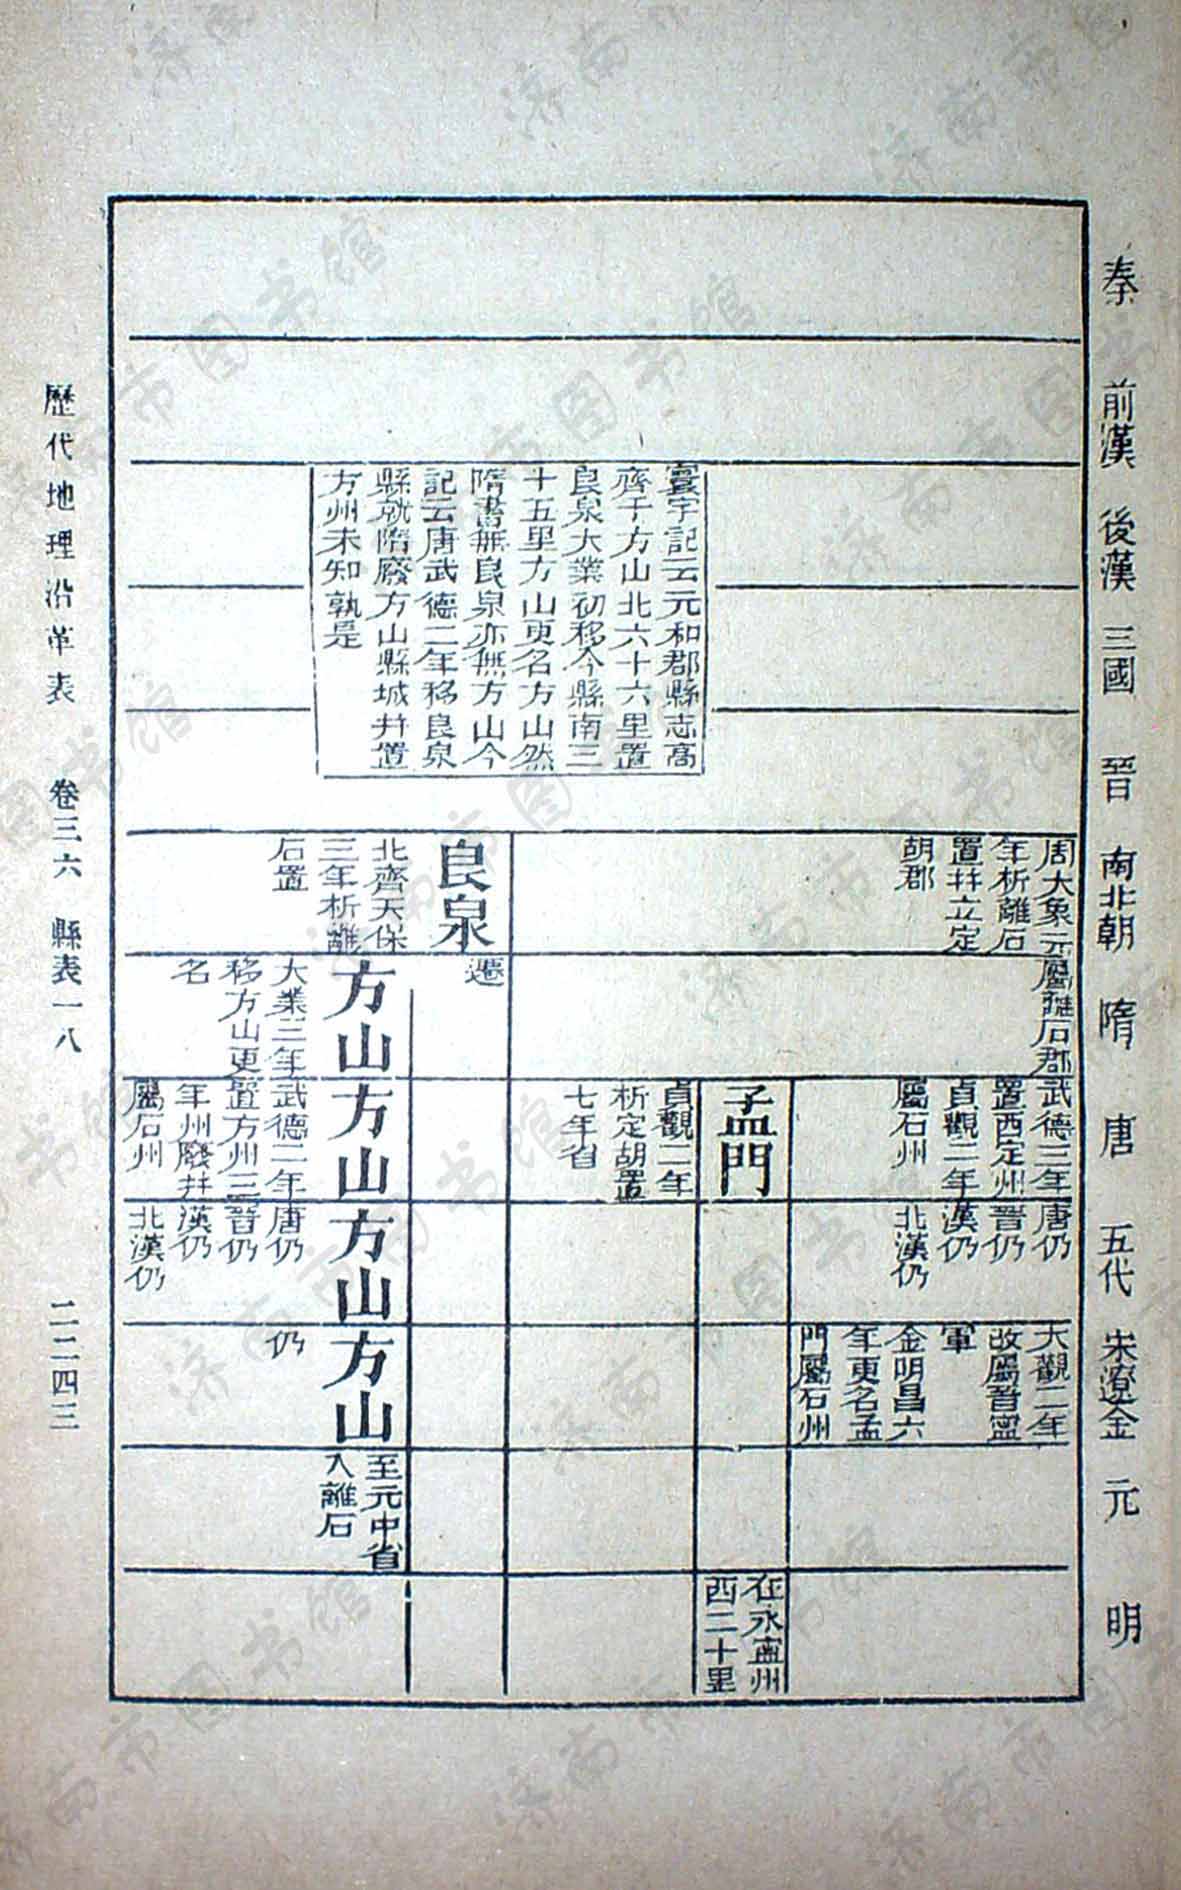 秦
前漢
後漢
三國
晉
南北朝
隋
唐
五代
宋遼金
元
明
周大象元
年析離石
置井立定
胡郡
屬離石郡
武德三年
置西定州
貞觀二年
屬石州
唐仍
晉仍
漢仍
北漢仍
大觀二年
改屬晉寧
軍
金明昌六
年更名孟
門屬石州
孟門
貞觀二年
析定胡置
七年省
在永寧州
西二十里
寰宇記云元和郡縣志高
齊于方山北六十六里置
良泉大業初移今縣南三
十五里方山更名方山然
隋書無良泉亦無方山今
記云唐武德二年移良泉
縣就隋廢方山縣城井置
方州未知孰是
良泉
北齊天保
三年析離
石置
遷
方山
大業三年
移方山更
名
方山
武德二年
置方州三
年州廢井
屬石州
方山
唐仍
晉仍
漢仍
北漢仍
方山
仍
至元中省
入離石
歷代地理沿革表 卷三六 縣表一八 二二四三
济南市图书馆